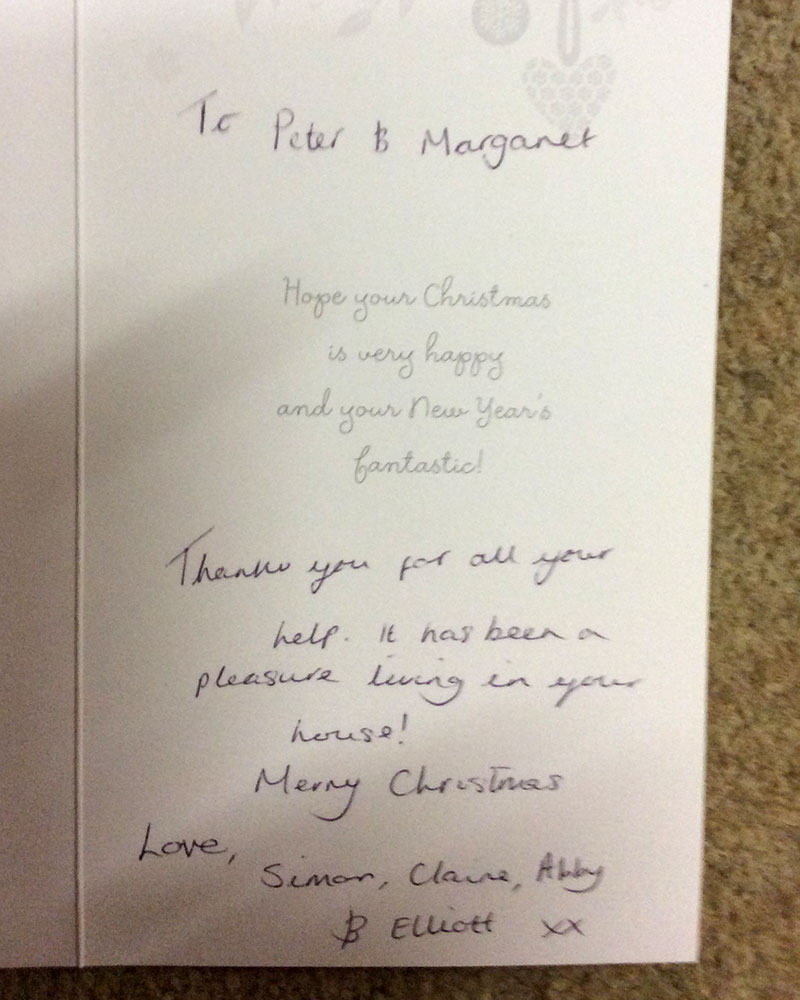 To Peter & Margaret
Hope your Christmas
is very happy
and your New Year's
fantastic!
Thank you for all your
help. It has been a
pleasure living in your
house!
Merry Christmas
Love,
Simon, Claire, Abby
& Elliott xx